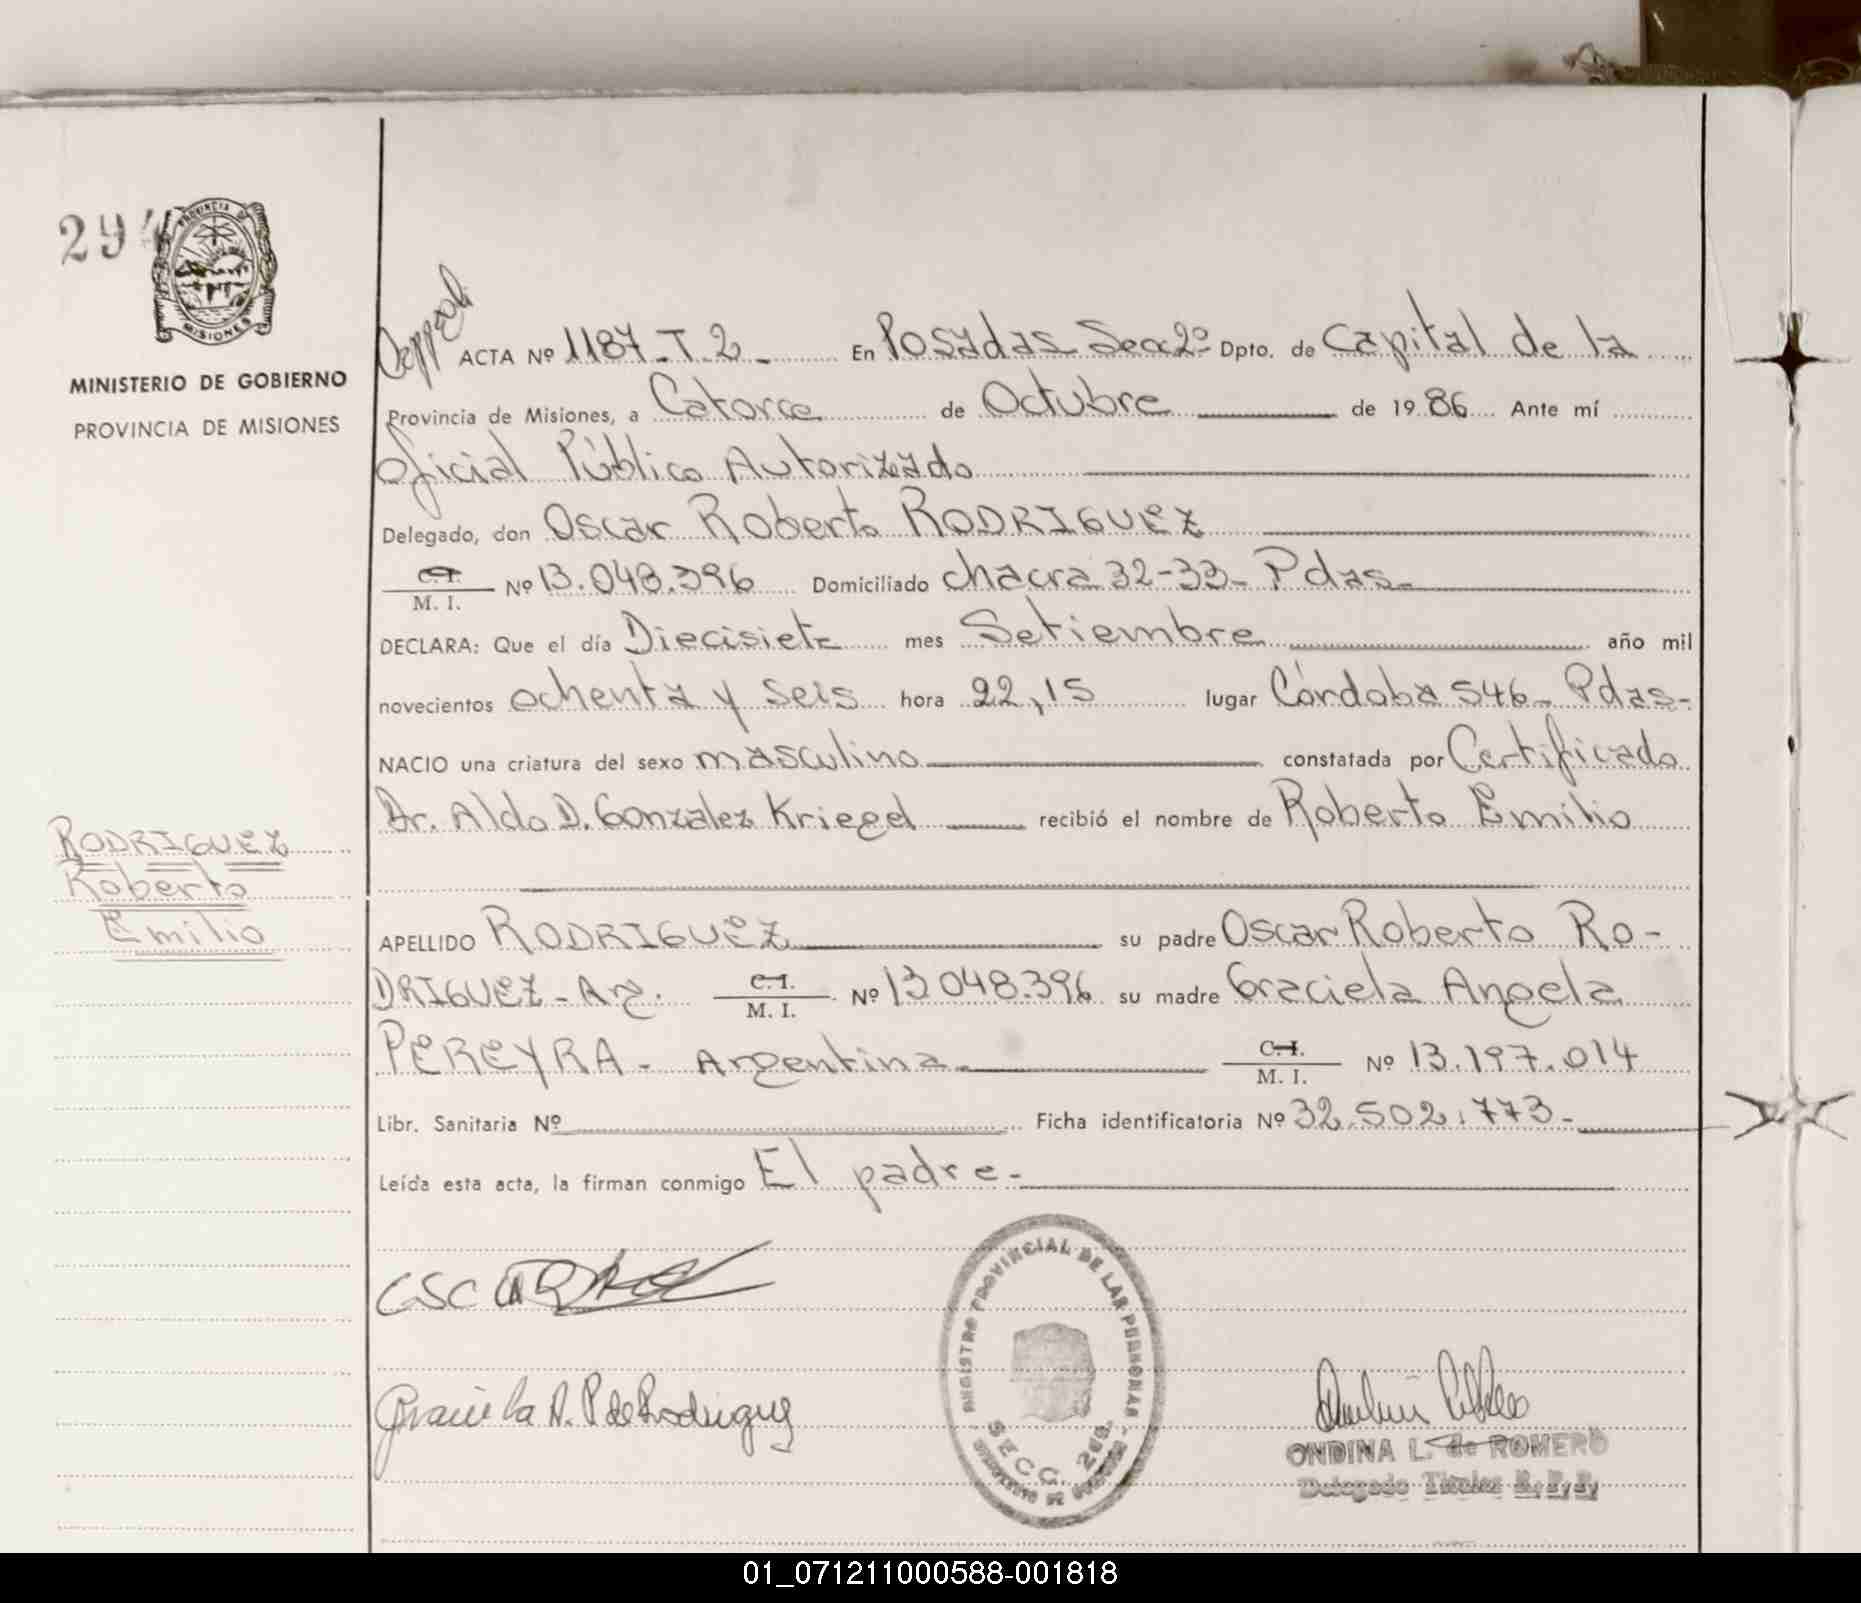 294
PROVINCIA DE
MISIONES
MINISTERIO DE GOBIERNO
PROVINCIA DE MISIONES
ACTA Nº 1187-T.2- En Posadas Secc 2º Dpto. de Capital de la
Provincia de Misiones, a Catorce de Octubre de 1986 Ante mí
Oficial Público Autorizado
Delegado, don Oscar Roberto RODRIGUEZ
C.I.
M. I. Nº 13.048.396 Domiciliado chacra 32-33- Pdas-
DECLARA: Que el día Diecisiete mes Setiembre año mil
novecientos ochenta y seis hora 22,15 lugar Córdoba 546- Pdas-
NACIO una criatura del sexo masculino constatada por Certificado
Dr. Aldo D. Gonzalez Kriegel recibió el nombre de Roberto Emilio
RODRIGUEZ
Roberto
Emilio
APELLIDO RODRIGUEZ su padre Oscar Roberto RO-
DRIGUEZ- Arg. C.I.
M. I. Nº 13048.396 su madre Graciela Angela
PEREYRA- Argentina- C.I.
M. I. Nº 13.197.014
Libr. Sanitaria Nº Ficha identificatoria Nº 32.502.773-
Leída esta acta, la firman conmigo El padre-
Graciela A. P de Rodriguez
REGISTRO PROVINCIAL DE LAS PERSONAS
SECC. 2da.
ONDINA L. de ROMERO
Delegado Titular R.P.P.
01_071211000588-001818